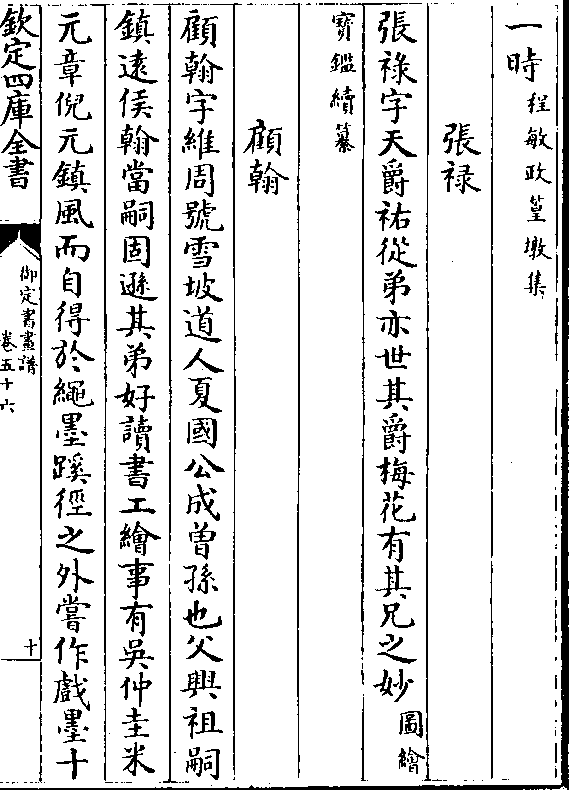 一時程敏政篁墩集
張祿
張祿字天爵祐從弟亦世其爵梅花有其兄之妙圖繪
寶鑑續纂
顧翰
顧翰字維周號雪坡道人夏國公成曽孫也父興祖嗣
鎮遠侯翰當嗣固遜其弟好讀書工繪事有吳仲圭米
元章倪元鎮風而自得於繩墨蹊徑之外嘗作戲墨十
欽定四庫全書
御定書畫譜
卷五十六
十